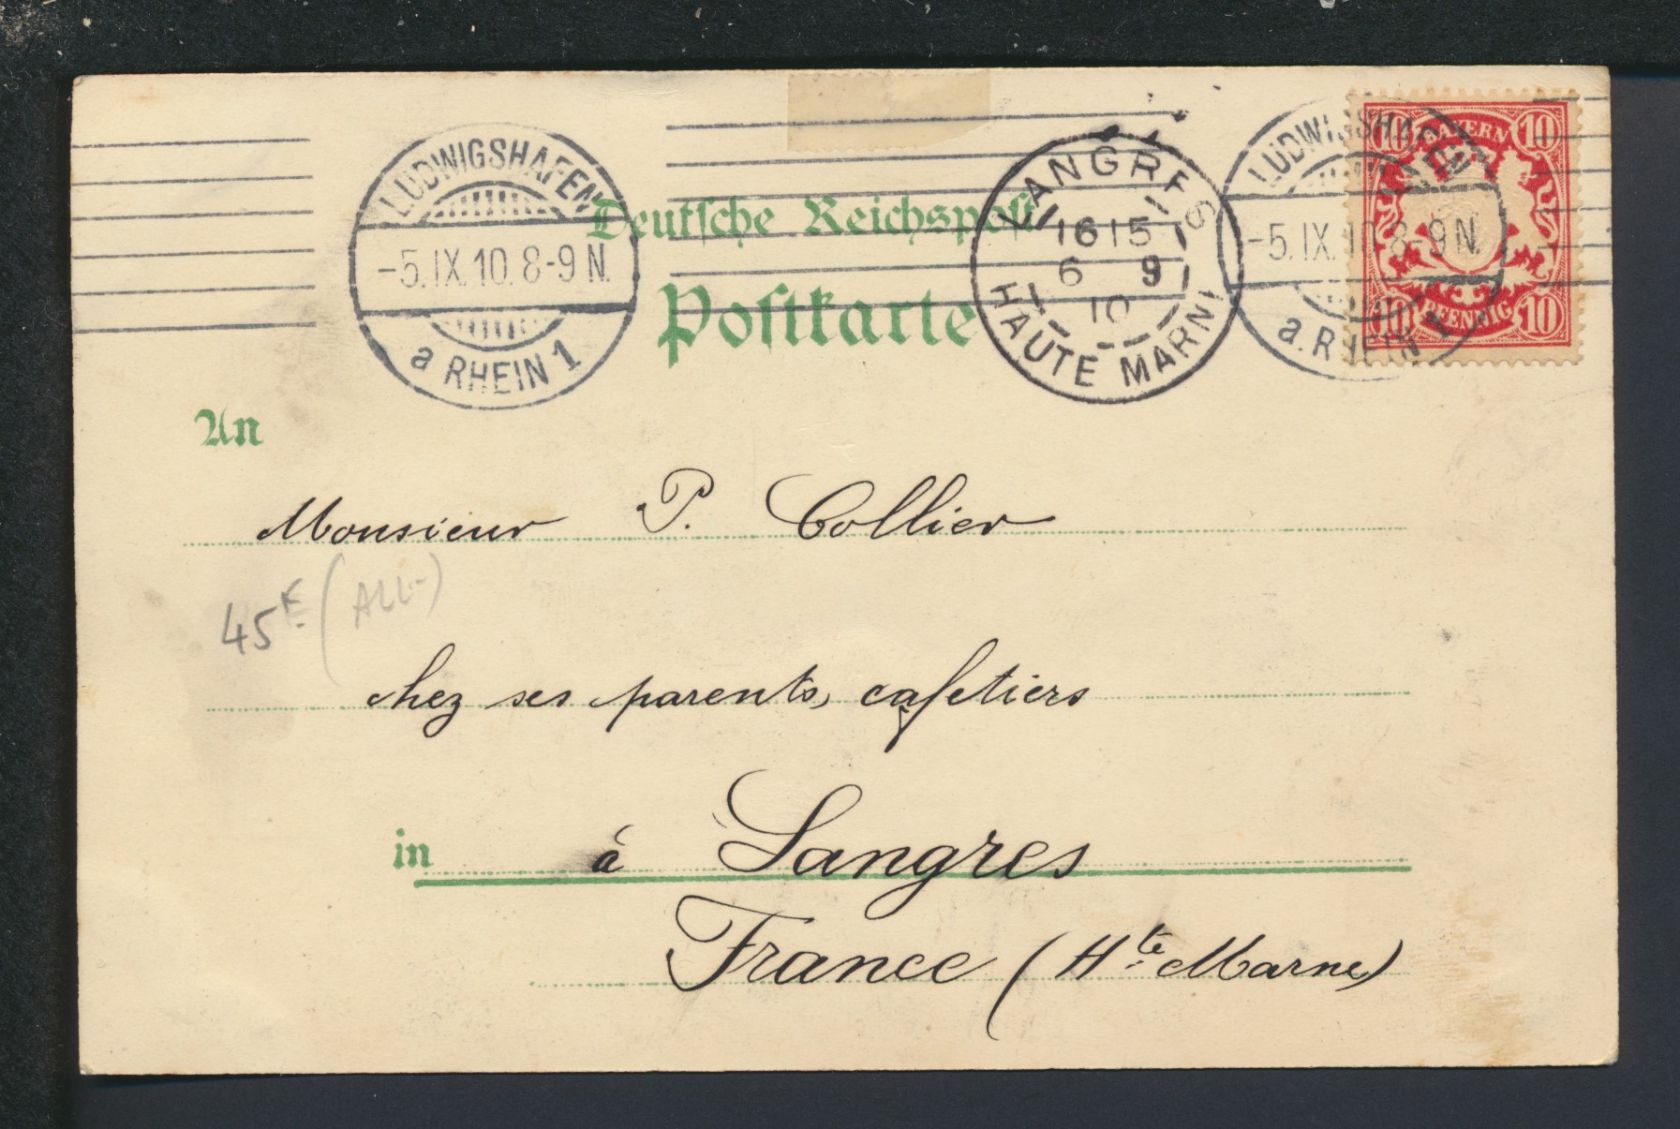 LUDWIGSHAFEN
-5.IX.10.8-9 N.
a RHEIN 1
LANGRES
1615
6 9
10
HAUTE MARNE
LUDWIGSHAFEN
-5.IX.10.8-9 N.
a. RHEIN 1
10 BAYERN 10
10 PFENNIG 10
Deutsche Reichspost
Postkarte
An
Monsieur P. Collier
45F (ALL-)
chez ses parents, cafetiers
in à Langres
France (Hte Marne)